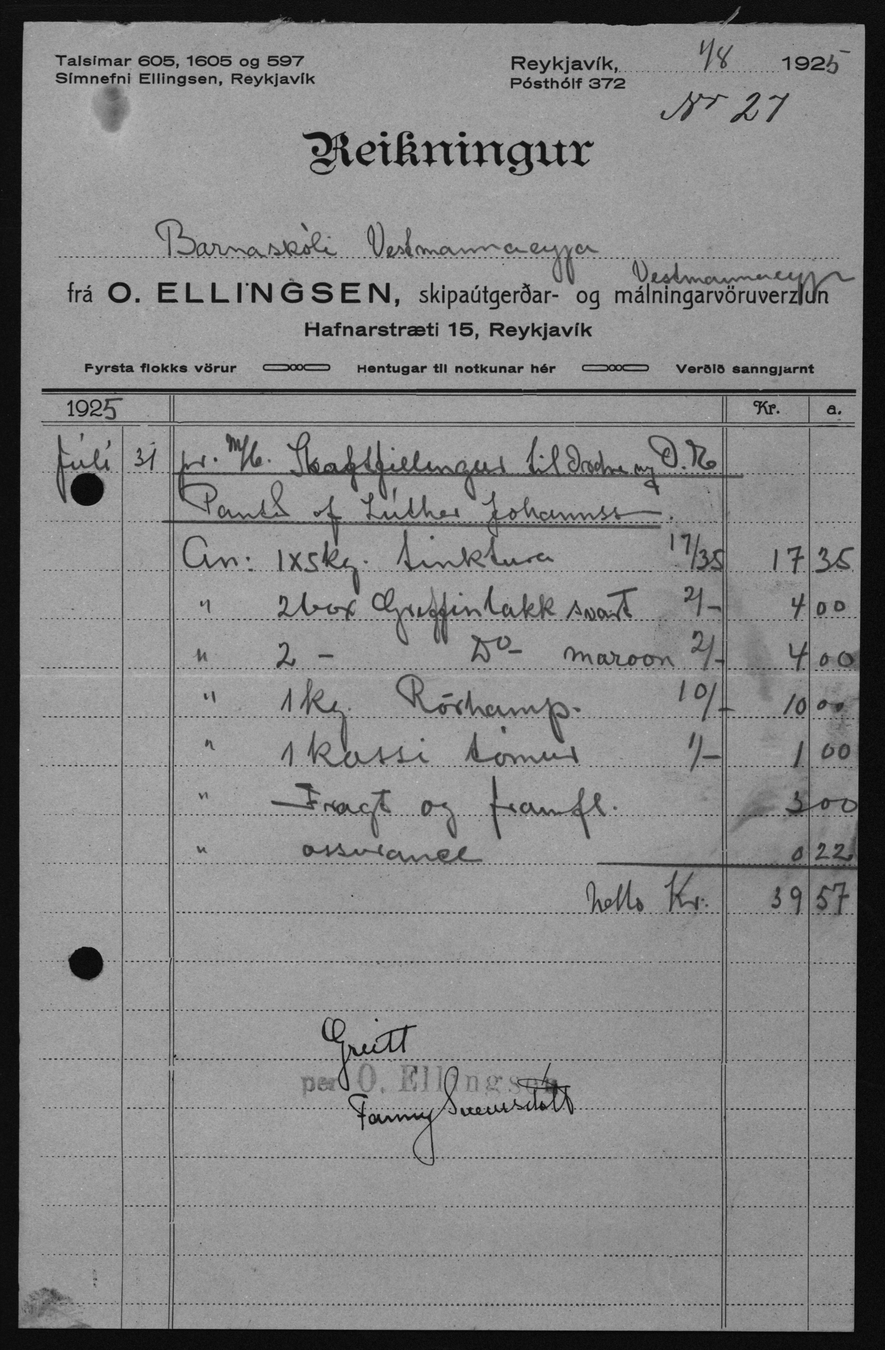 Talsímar 605, 1605 og 597
Símnefni Ellingsen, Reykjavík
Reykjavík, 1/8 1925
Pósthólf 372
Nr 27
Reikningur
Barnaskóli Vestmannaeyja
Vestmannaeyja
frá O. ELLINGSEN, skipaútgerðar- og málningarvöruverzlun
Hafnarstræti 15, Reykjavík
Fyrsta flokks vörur Hentugar til notkunar hér Verðið sanngjarnt
1925 Kr. a.
Júlí 31 pr. M/b. Skaftfellingur til
Pant. af Lúther Johannss
An: 1x5kg. tinktura 17/35 17 35
" 2 box Griffinlakk svart 2/- 4 00
" 2 - Do- maroon 2/- 4 00
" 1 kg. Rörhamp. 10/- 10 00
" 1 kassi tómur 1/- 1 00
" Fragt og framfl. 3 00
" assurance 0 22
netto Kr. 39 57
Greitt
per O. Ellingsen
Fanny